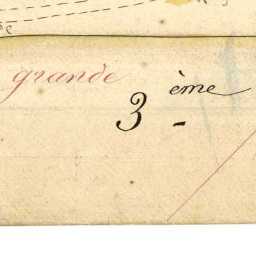 grande
3 ème